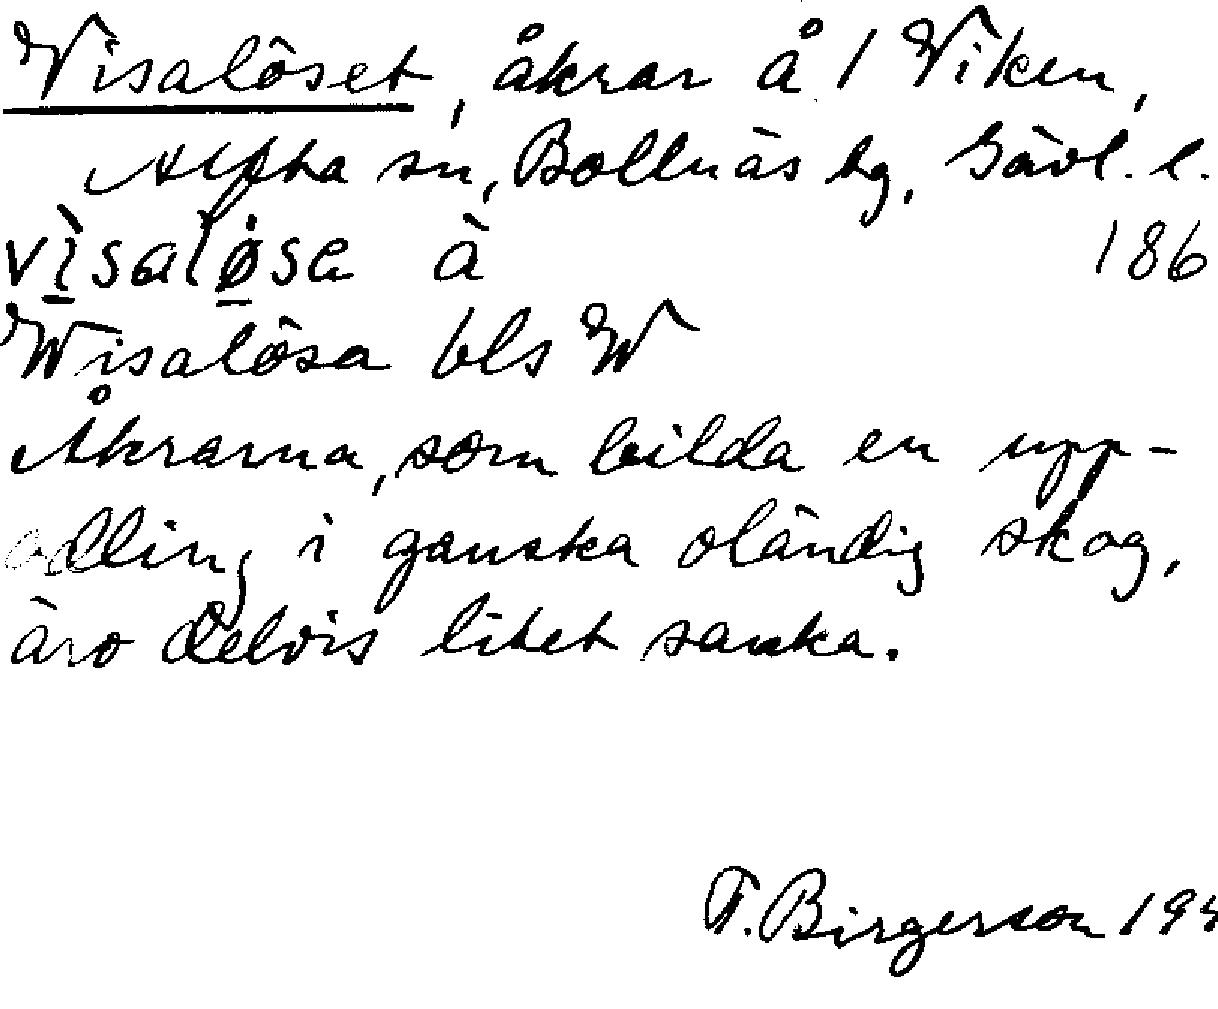 Visalöset, åkrar å 1 Viken,
Alfta sn, Bollnäs tg, Gävl. l.
visaløse à
186
Wisalösa bls W
Åkrarna, som bilda en upp-
odling i ganska oländig skog,
äro delvis litet sanka.
F. Birgerson 194